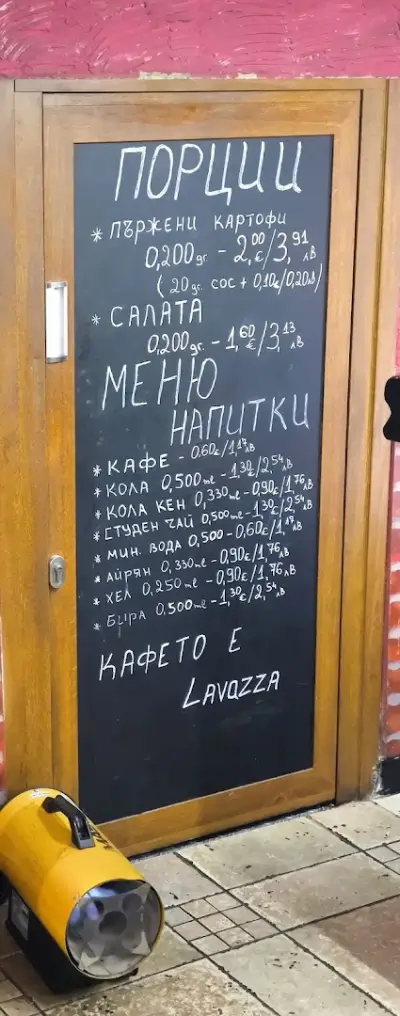 ПОРЦИИ
* ПЪРЖЕНИ КАРТОФИ
0,200gr. - 2,00€/3,91лв
(20gr. СОС + 0,10€/0,20лв)
* САЛАТА
0,200gr. - 1,60€/3,13лв
МЕНЮ
НАПИТКИ
* КАФЕ - 0,60€/1,17лв
* КОЛА 0,500ml - 1,30€/2,54лв
* КОЛА КЕН 0,330ml - 0,90€/1,76лв
* СТУДЕН ЧАЙ 0,500ml - 1,30€/2,54лв
* МИН. ВОДА 0,500 - 0,60€/1,17лв
* АЙРЯН 0,330ml - 0,90€/1,76лв
* ХЕЛ 0,250ml - 0,90€/1,76лв
* БИРА 0.500ml - 1,30€/2,54лв
КАФЕТО Е
LAVAZZA